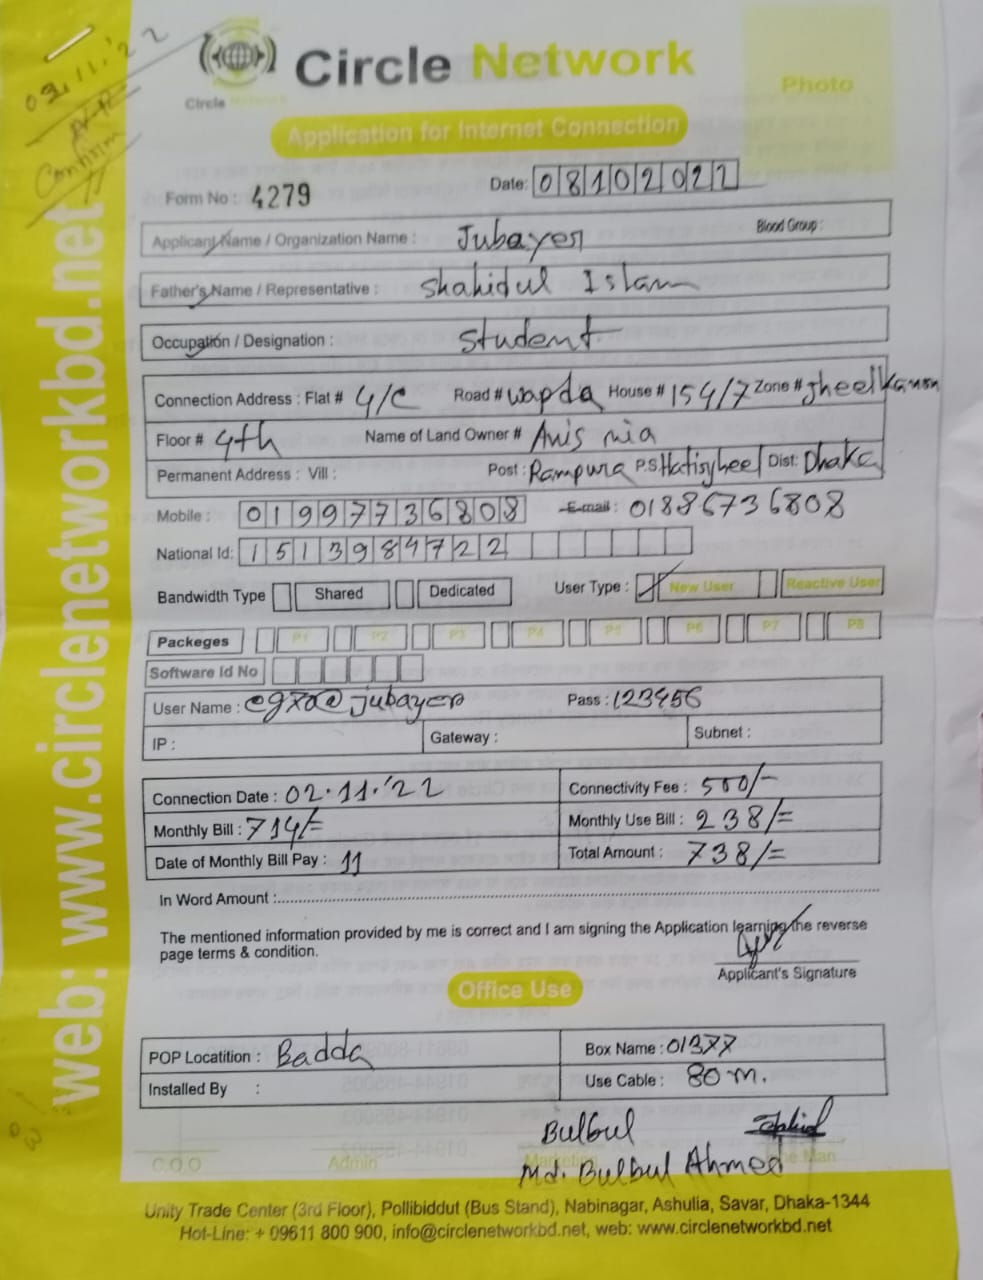 03.11.'22
Confirm
Circle Network
Circle Network
Photo
Application for Internet Connection
Form No : 4279
Date: 08102022
Applicant Name / Organization Name : Jubayer
Blood Group :
Father's Name / Representative : Shahidul Islam
Occupation / Designation : Student
Connection Address : Flat # 4/C Road # wapda House # 154/7 Zone # Jheelkanon
Floor # 4th Name of Land Owner # Anis mia
Permanent Address : Vill : Post : Rampura P.S Hatirjheel Dist: Dhaka
Mobile : 01997736808 E-mail : 01886736808
National Id: 1513984722
Bandwidth Type Shared Dedicated User Type : New User Reactive User
Packeges P1 P2 P3 P4 P5 P6 P7 P8
Software Id No
User Name : @jubayer Pass : 123456
IP : Gateway : Subnet :
Connection Date : 02.11.'22 Connectivity Fee : 500/-
Monthly Bill : 714/= Monthly Use Bill : 238/=
Date of Monthly Bill Pay : 11 Total Amount : 738/=
In Word Amount :
The mentioned information provided by me is correct and I am signing the Application learning the reverse
page terms & condition.
Applicant's Signature
Office Use
POP Locatition : Badda Box Name : 013
Installed By : Use Cable : 80 m.
Bulbul
C O O Admin Marketing
Md. Bulbul Ahmed
Unity Trade Center (3rd Floor), Pollibiddut (Bus Stand), Nabinagar, Ashulia, Savar, Dhaka-1344
Hot-Line: + 09611 800 900, info@circlenetworkbd.net, web: www.circlenetworkbd.net
web: www.circlenetworkbd.net